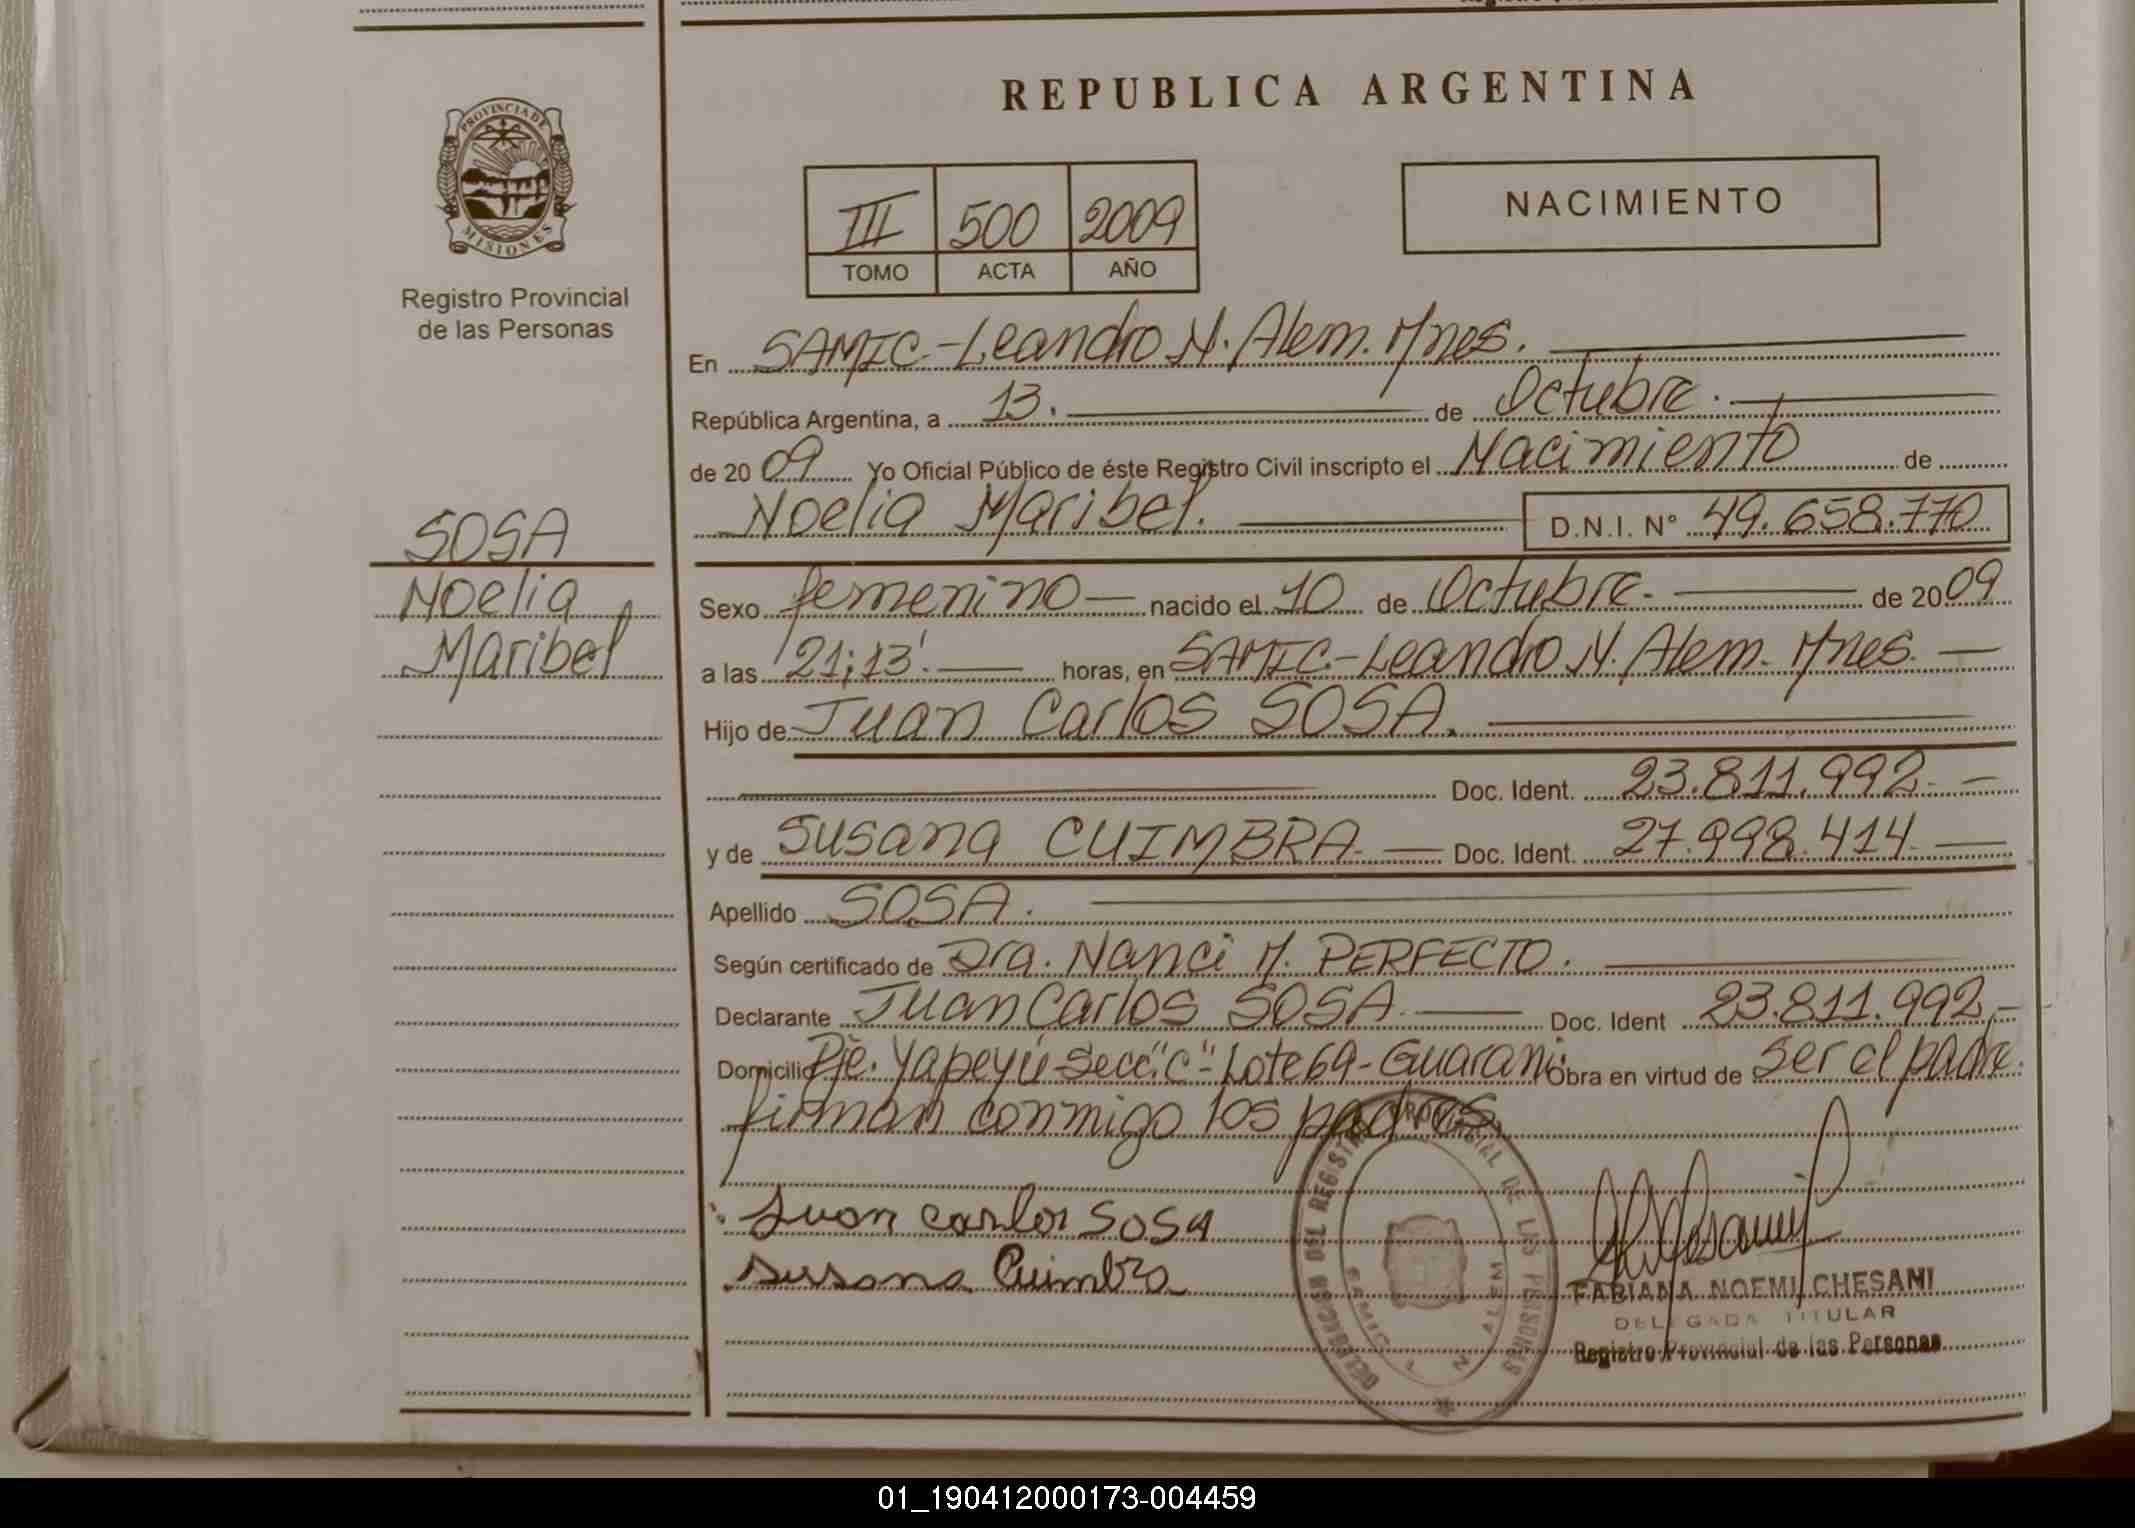 REPUBLICA ARGENTINA
PROVINCIA DE
MISIONES
Registro Provincial
de las Personas
III 500 2009
TOMO ACTA AÑO
NACIMIENTO
En SAMIC-Leandro N. Alem. Mnes.
República Argentina, a 13. de Octubre.
de 2009 Yo Oficial Público de éste Registro Civil inscripto el Nacimiento de
Noelia Maribel. D.N.I. N° 49.658.770
SOSA
Noelia
Maribel
Sexo femenino nacido el 10 de Octubre. de 2009
a las 21;13'. horas, en SAMIC.-Leandro N. Alem. Mnes.
Hijo de Juan Carlos SOSA.
Doc. Ident. 23.811.992.
y de Susana CUIMBRA. Doc. Ident. 27.998.414.
Apellido SOSA.
Según certificado de Dra. Nanci M. PERFECTO.
Declarante Juan Carlos SOSA. Doc. Ident 23.811.992.
Domicilio Pje. Yapeyú-Secc."C"-Lote 69-Guaraní. Obra en virtud de ser el padre.
firman conmigo los padres.
Juan carlos SOSA
Susana Cuimbra
DELEGACION DEL REGISTRO PROVINCIAL DE LAS PERSONAS
SAMIC L. N. ALEM
FABIANA NOEMI CHESANI
DELEGADA TITULAR
Registro Provincial de las Personas
01_190412000173-004459